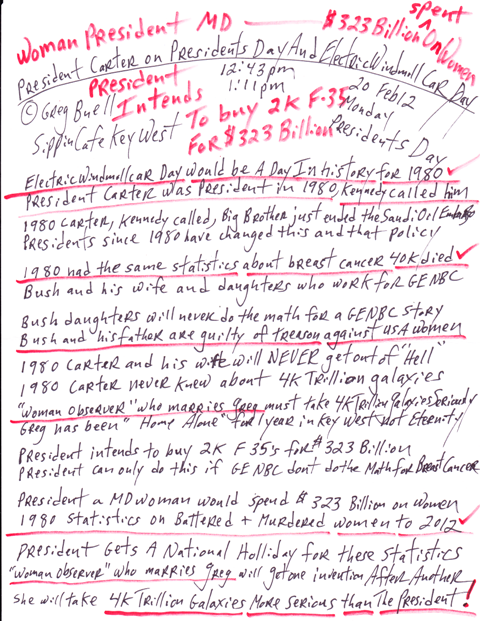 Woman President MD — $323 Billion spent On Women
President Carter on Presidents Day And Electric Windmill Car Day
12:43pm
1:11pm
20 Feb 12
Monday
Presidents Day
© Greg Buell
Sippin Cafe Key West
PResident
Intends
To buy 2K F-35
FoR $323 Billion
Electric Windmill Car Day would be A Day In history for 1980 ✓
President Carter was President in 1980, Kennedy called him
1980 Carter, Kennedy called, Big Brother just ended the Saudi Oil Embargo
Presidents since 1980 have changed this and that policy
1980 had the same statistics about breast cancer 40K died ✓
Bush and his wife and daughters who work for GE NBC
Bush daughters will never do the math for a GE NBC story
Bush and his father are guilty of treason against USA women
1980 Carter and his wife will NEVER get out of "Hell"
1980 Carter never knew about 4K Trillion galaxies
"Woman Observer" who marries greg must take 4K Trillion Galaxies Seriously
Greg has been "Home Alone" for 1 year in Key West not Eternity
President intends to buy 2K F 35's for $323 Billion
President can only do this if GE NBC dont do the Math for Breast Cancer
President a MD woman would spend $323 Billion on Women
1980 Statistics on Battered + Murdered women to 2012 ✓
President Gets A National Holliday for these statistics
"Woman Observer" who marries greg will get one invention After Another
She will take 4K Trillion Galaxies More Serious than The President!